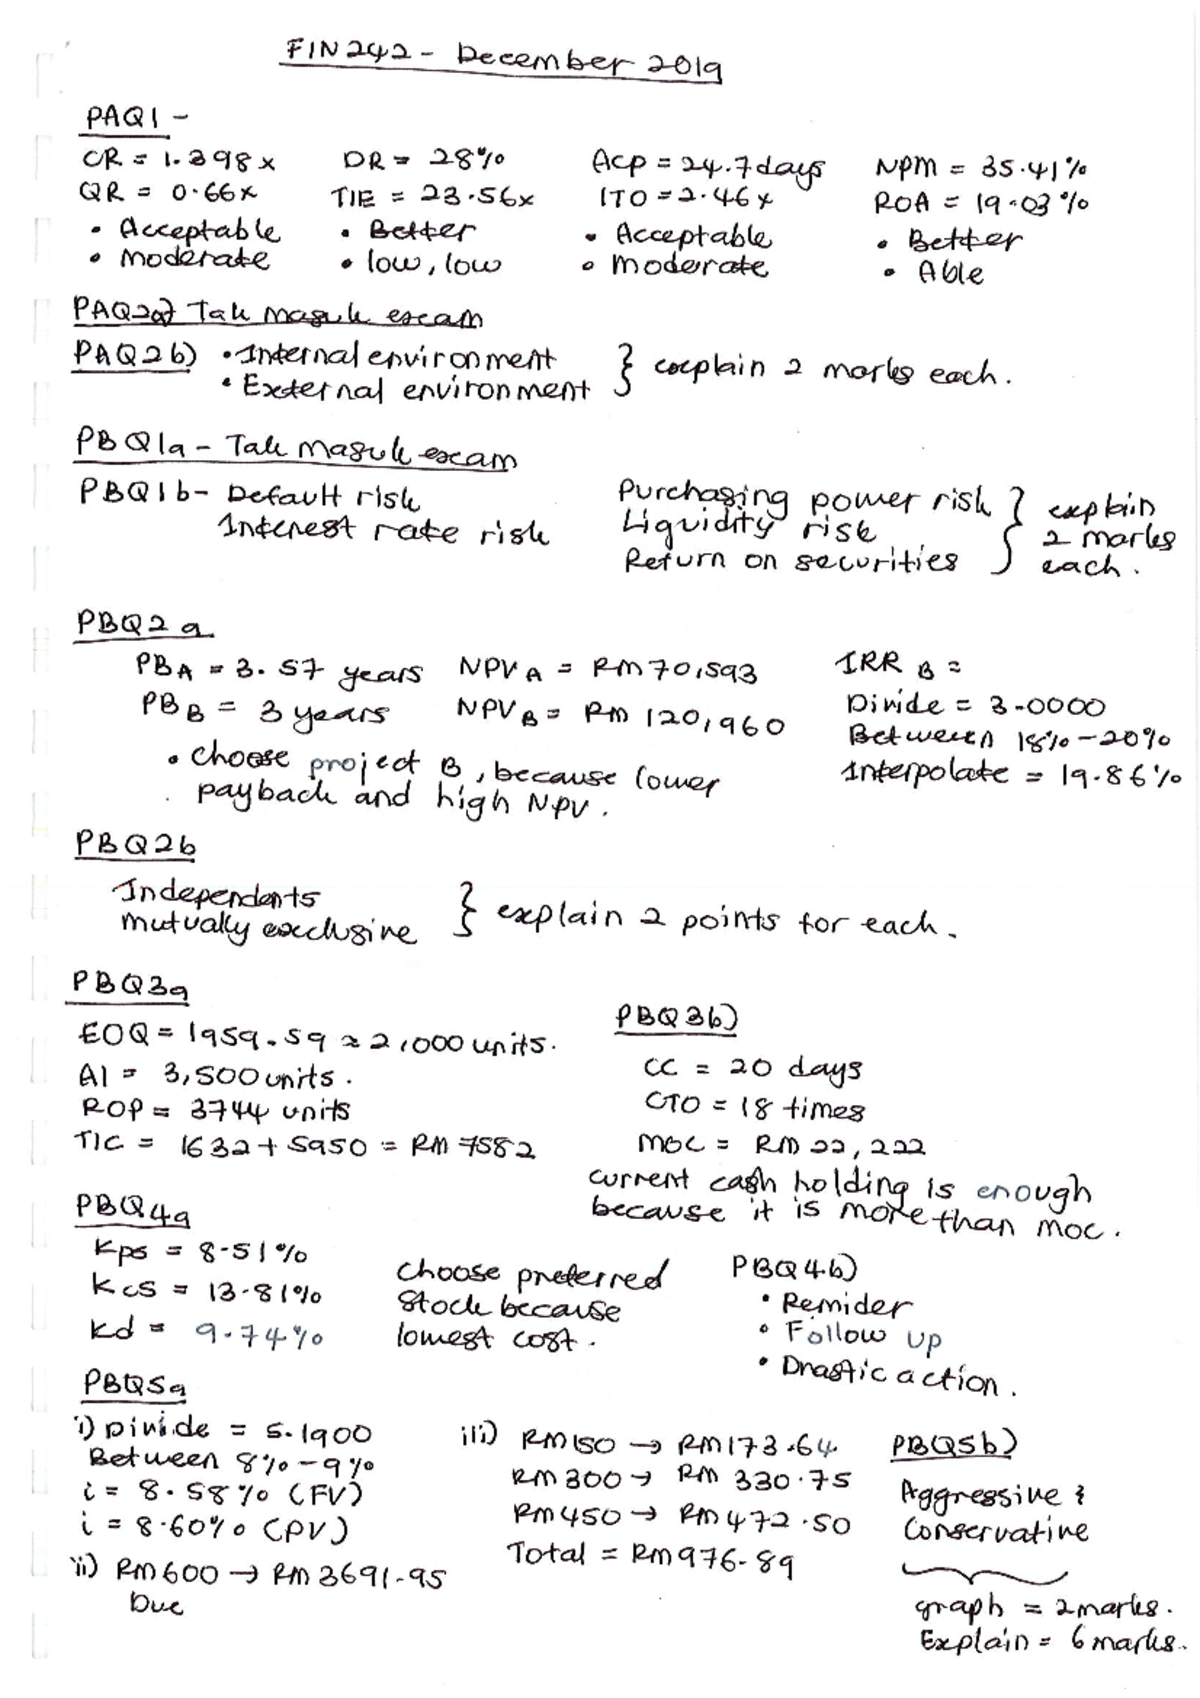 FIN242 - December 2019
PAQ1 -
CR = 1.398x
QR = 0.66x
• Acceptable
• Moderate
DR = 28%
TIE = 23.56x
• Better
• low, low
ACP = 24.7 days
ITO = 2.46x
• Acceptable
• Moderate
NPM = 35.41%
ROA = 19.03%
• Better
• Able
PAQ2a) Tak masuk exam
PAQ2b) • Internal environment
• External environment
} explain 2 marks each.
PBQ1a - Tak masuk exam
PBQ1b - Default risk
Interest rate risk
Purchasing power risk
Liquidity risk
Return on securities
} explain
2 marks
each.
PBQ2a
PBA = 3.57 years
PBB = 3 years
NPVA = RM70,593
NPVB = RM 120,960
• choose project B, because lower
payback and high NPV.
IRR B =
Divide = 3.0000
Between 18% - 20%
Interpolate = 19.86%
PBQ2b
Independents
Mutually exclusive
} explain 2 points for each.
PBQ3a
EOQ = 1959.59 ≈ 2,000 units.
AI = 3,500 units.
ROP = 3744 units
TIC = 1632 + 5950 = RM 7582
PBQ3b)
CC = 20 days
CTO = 18 times
MOC = RM 22,222
current cash holding is enough
because it is more than moc.
PBQ4a
Kps = 8.51%
Kcs = 13.81%
Kd = 9.74%
choose preferred
Stock because
lowest cost.
PBQ4b)
• Remider
• Follow up
• Drastic action.
PBQ5a
i) Divide = 5.1900
Between 8% - 9%
i = 8.58% (FV)
i = 8.60% (PV)
ii) RM600 → RM3691.95
Due
iii) RM150 → RM173.64
RM300 → RM 330.75
RM450 → RM472.50
Total = RM976.89
PBQ5b)
Aggressive &
Conservative
graph = 2marks.
Explain = 6marks.